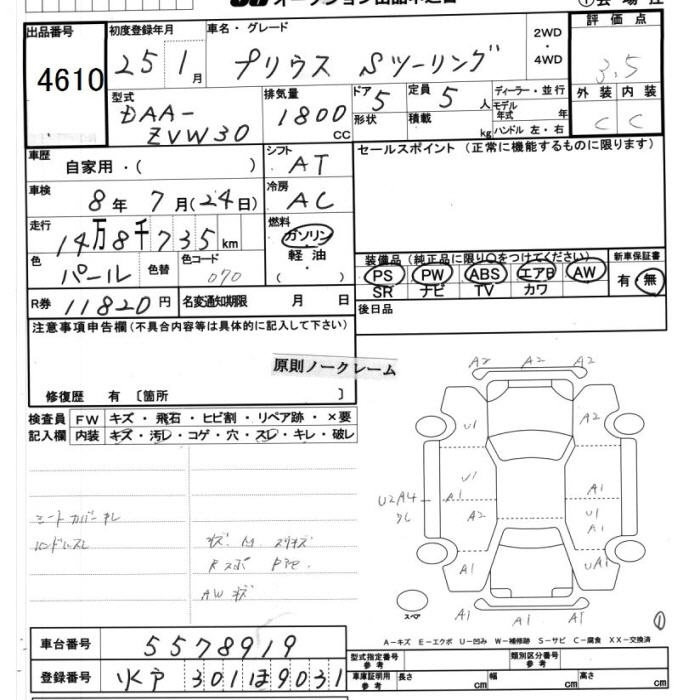 オークション出品申込書
出品番号 4610
初度登録年月 25 1月
車名・グレード プリウス Sツーリング
2WD・4WD
評価点 3.5
外装 C 内装 C
型式 DAA-ZVW30
排気量 1800 CC
ドア 5
形状
定員 5人
積載 kg
ディーラー・並行
モデル年式 年
ハンドル 左・右
車歴 自家用・( )
シフト AT
セールスポイント(正常に機能するものに限ります)
車検 8年7月(24日)
冷房 AC
走行 14万8千735km
燃料 ガソリン 軽油・( )
色 パール 色替 色コード 070
装備品(純正品に限り○をつけてください) 新車保証書
PS PW ABS エアB AW 有・無
SR ナビ TV カワ
R券 11820円 名変通知期限 月 日
後日品
注意事項申告欄(不具合内容等は具体的に記入して下さい)
原則ノークレーム
修復歴 有〔箇所 〕
検査員記入欄 FW キズ・飛石・ヒビ割・リペア跡・×要
内装 キズ・汚レ・コゲ・穴・スレ・キレ・破レ
シートカバーキレ
ハンドルスレ
AWキズ
A2 A2 A2
U1 A2
U1 A1
U2A4 A1 U1
A2 A1
A1 UA1
スペア A1 A1 A1
①
A-キズ E-エクボ U-凹み W-補修跡 S-サビ C-腐食 XX-交換済
車台番号 5578919
型式指定番号 参考 類別区分番号 参考
登録番号 水戸 301 ほ 9031
車庫証明用 参考 長さ cm 幅 cm 高さ cm